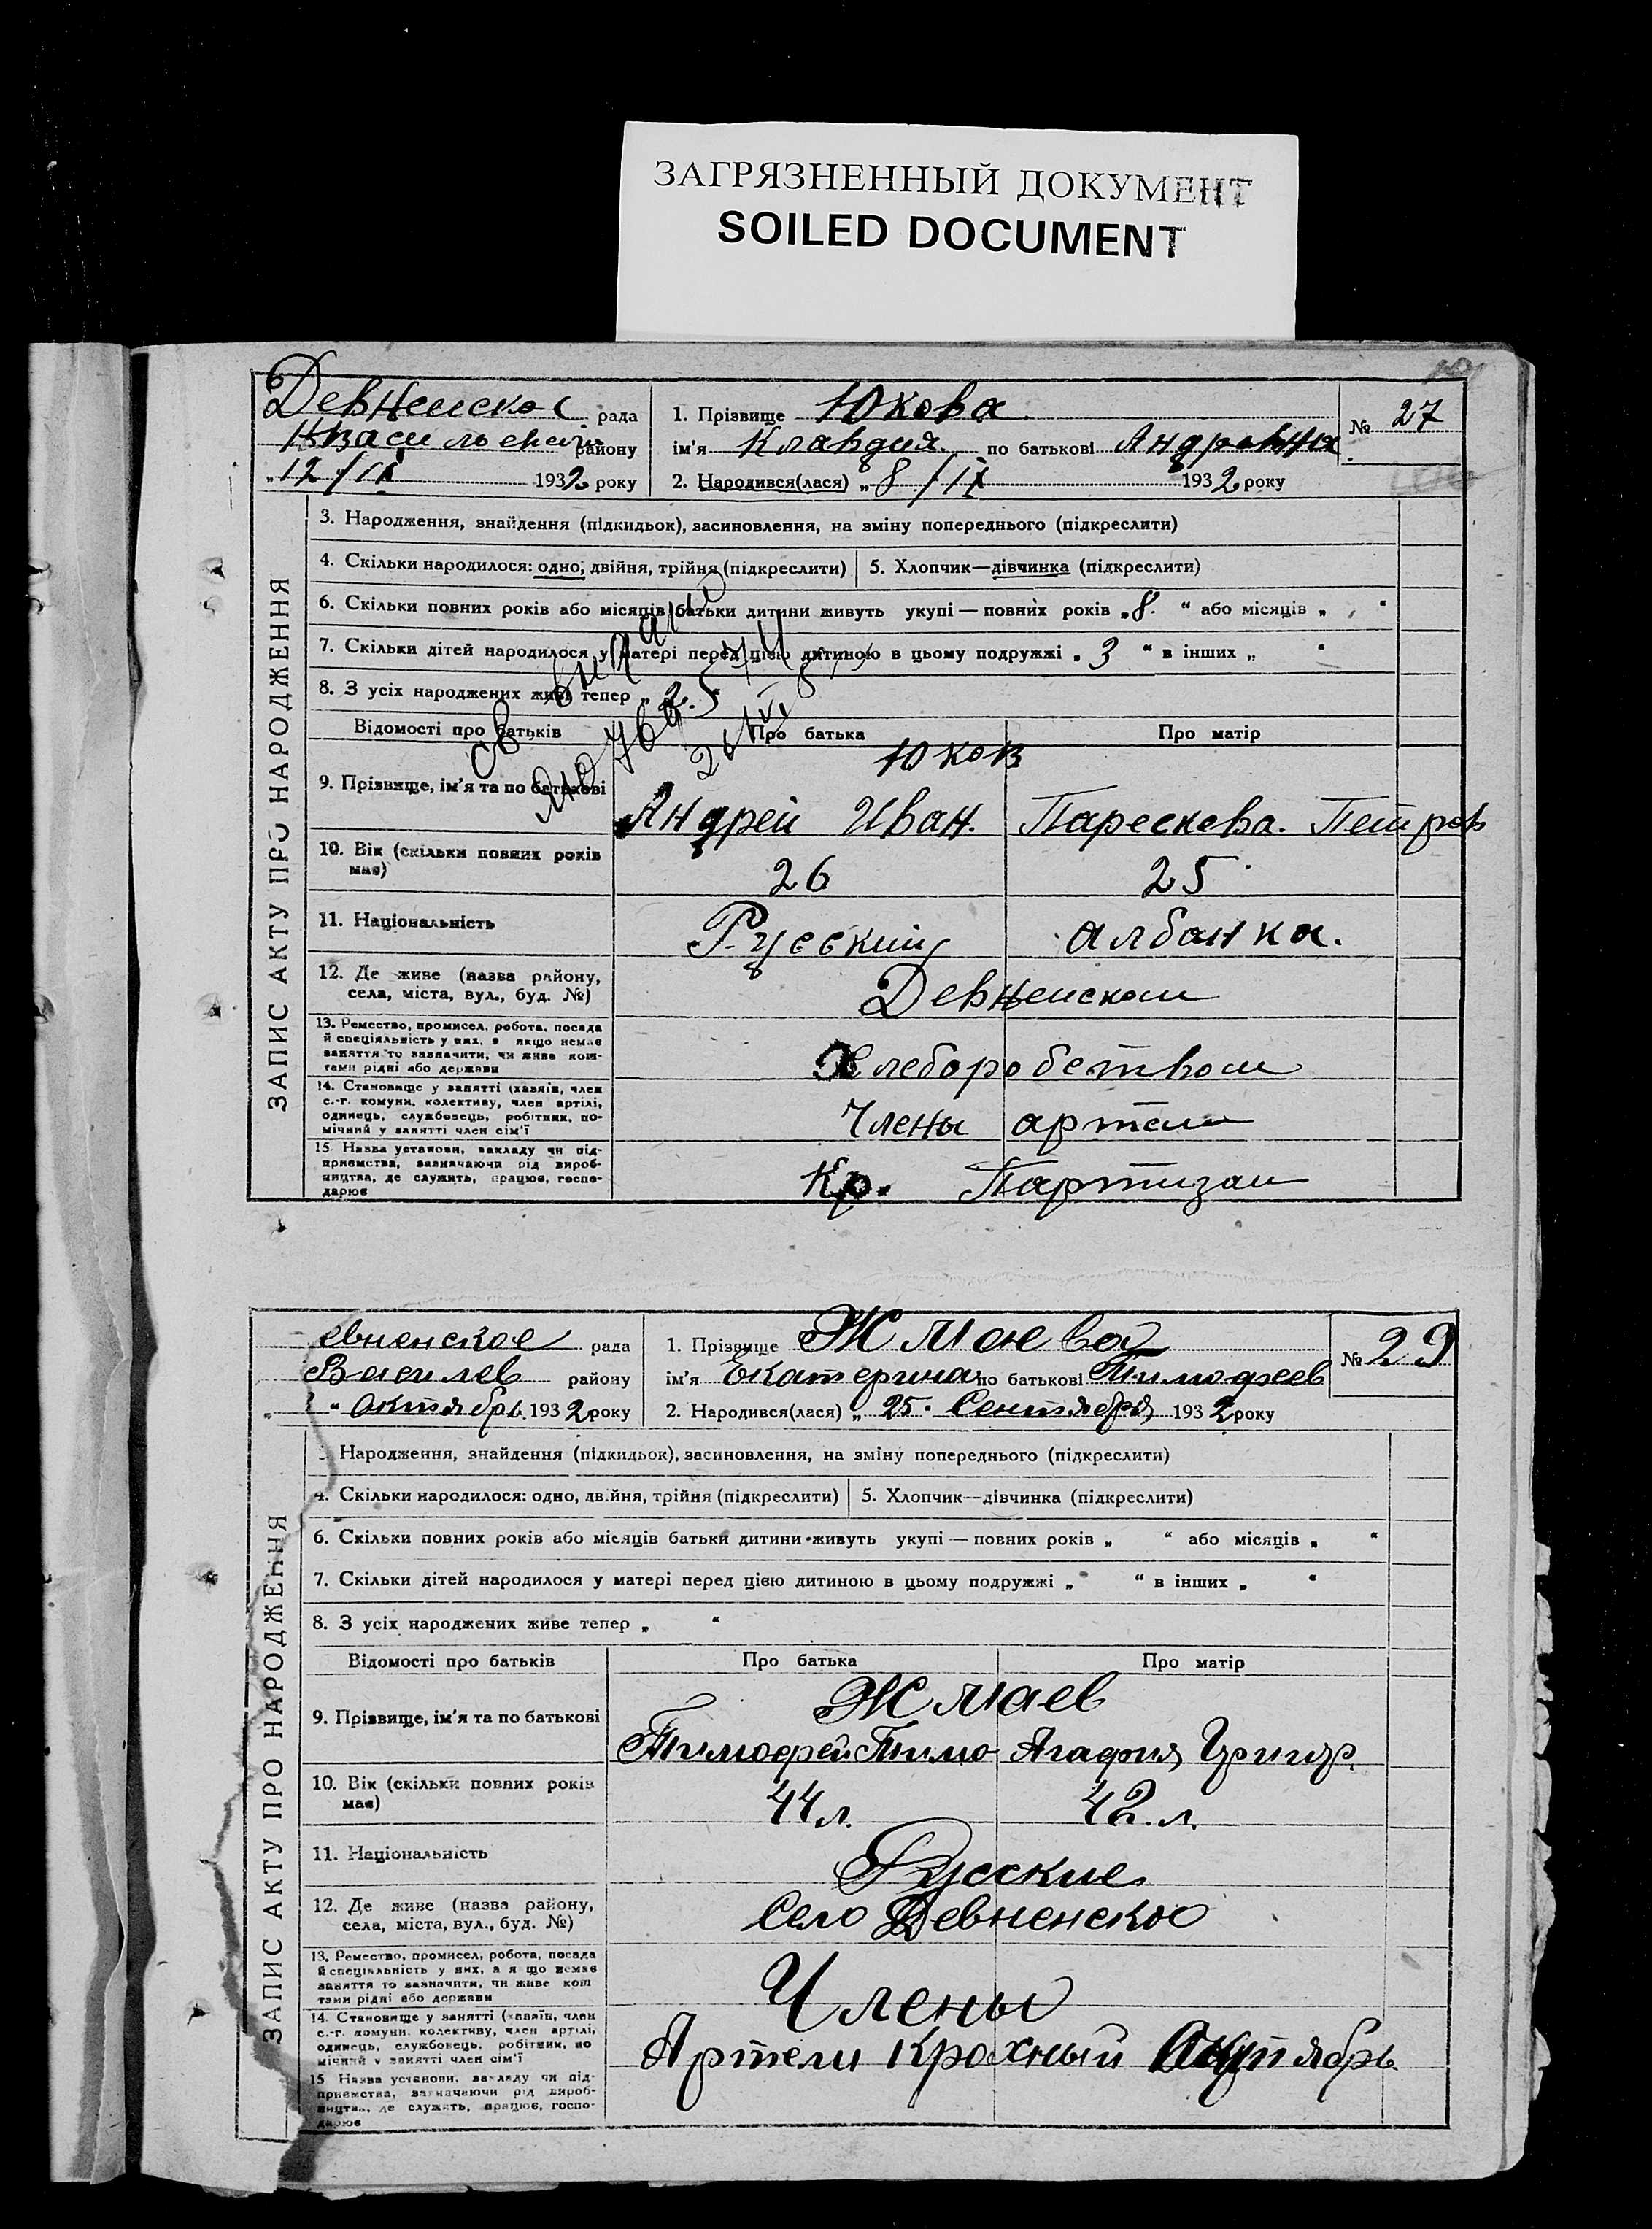 ЗАГРЯЗНЕННЫЙ ДОКУМЕНТ
SOILED DOCUMENT
Девненское рада
району
"12/IX 1932 року
1. Прізвище Юкова.
ім'я Клавдия. по батькові Андреевна.
2. Народився(лася) „8/IX 1932 року
№ 27
ЗАПИС АКТУ ПРО НАРОДЖЕННЯ
3. Народження, знайдення (підкидьок), засиновлення, на зміну попереднього (підкреслити)
4. Скільки народилося: одно, двійня, трійня (підкреслити)
5. Хлопчик—дівчинка (підкреслити)
6. Скільки повних років або місяців батьки дитини живуть укупі — повних років „8. “ або місяців „ “
7. Скільки дітей народилося у матері перед цією дитиною в цьому подружжі „3 “ в інших „ “
8. З усіх народжених живе тепер „2.
св. выдано
Відомості про батьків
Про батька
Про матір
Юков
9. Прізвище, ім'я та по батькові
Андрей Иван.
Парескева. Петров
10. Вік (скільки повних років має)
26
25
11. Національність
Русский
албанка.
12. Де живе (назва району, села, міста, вул., буд. №)
Девненском
13. Ремество, промисел, робота, посада й спеціяльність у них, а якщо немає заняття то зазначити, чи живе коштами рідні або держави
Хлеборобством
14. Становище у занятті (хазяїн, член с.-г. комуни, колективу, член артілі, одинець, службовець, робітник, помічний у занятті член сім'ї
Члены артели
15. Назва установи, закладу чи підприємства, зазначаючи рід виробництва, де служить, працює, господарює
Кр. Партизан
евненское рада
Василев району
" Октябрь 1932 року
1. Прізвище Жмаева
ім'я Екатерина по батькові Тимофеев
2. Народився(лася) „ 25. Сентября 1932 року
№ 29
ЗАПИС АКТУ ПРО НАРОДЖЕННЯ
Народження, знайдення (підкидьок), засиновлення, на зміну попереднього (підкреслити)
4. Скільки народилося: одно, двійня, трійня (підкреслити)
5. Хлопчик—дівчинка (підкреслити)
6. Скільки повних років або місяців батьки дитини живуть укупі — повних років „ “ або місяців „ “
7. Скільки дітей народилося у матері перед цією дитиною в цьому подружжі „ “ в інших „ “
8. З усіх народжених живе тепер „ “
Відомості про батьків
Про батька
Про матір
Жмаев
9. Прізвище, ім'я та по батькові
Тимофей Тимо
Агафия Григор.
10. Вік (скільки повних років має)
44 л.
42. л.
11. Національність
Русские
12. Де живе (назва району, села, міста, вул., буд. №)
Село Девненское
13. Ремество, промисел, робота, посада й спеціяльність у них, а якщо немає заняття то зазначити, чи живе коштами рідні або держави
Члены
14. Становище у занятті (хазяїн, член с.-г. комуни, колективу, член артілі, одинець, службовець, робітник, помічний у занятті член сім'ї
Артели Красный Октябрь
15 Назва установи, закладу чи підприємства, зазначаючи рід виробництва, де служить, працює, господарює